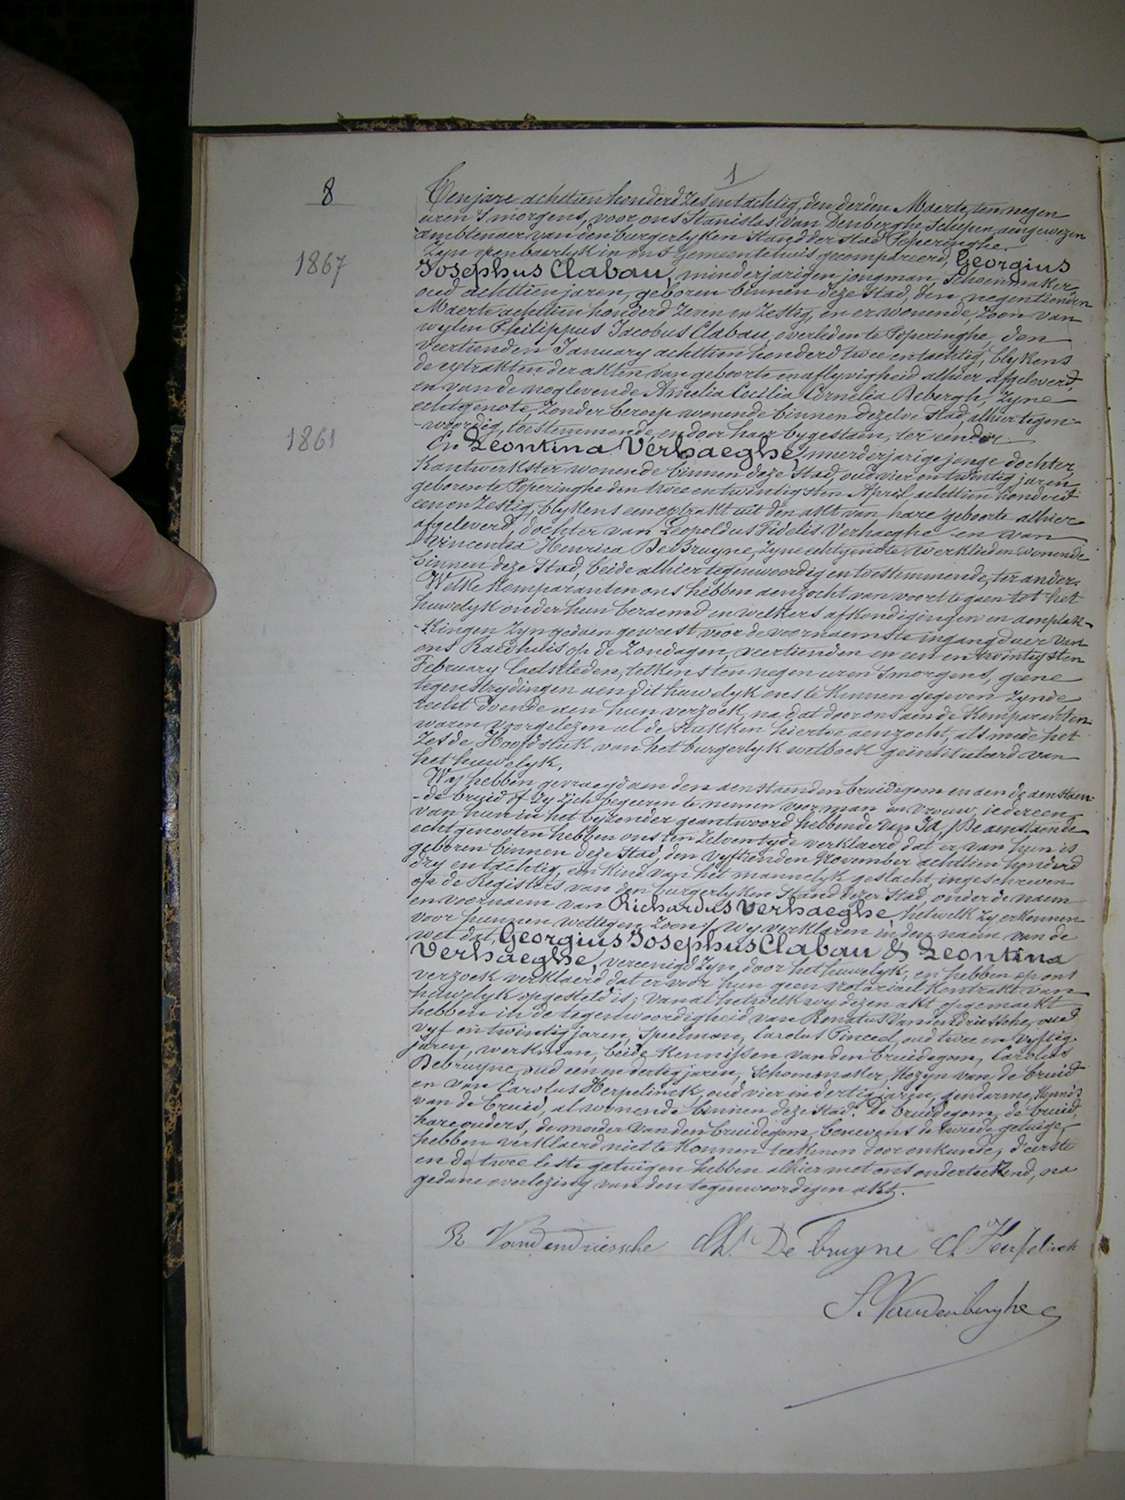 8
1
Ten jare achttien honderd zes en tachtig, den derden Maerte, ten negen
uren 's morgens, voor ons Stanislas Van Denberghe, Schepen, aengewezen
ambtenaer van den burgerlyken stand der stad Poperinghe
Zyn openbaerlyk in ons gemeentehuis gecompareerd, Georgius
1867
Josephus Clabau, minderjarigen jongman, Schoenmaker,
oud achttien jaren, geboren binnen deze stad, den negentienden
Maerte achttien honderd zeven en zestig, en er wonende, zoon van
wylen Philippus Jacobus Clabau, overleden te Poperinghe, den
veertienden January achttien honderd twee en tachtig, blykens
de extrakten der akten van geboorte en aflyvigheid alhier afgeleverd,
en van de noglevende Amelia Cecilia Cornelia Debergh, zyne
echtgenote, zonder beroep wonende binnen dezelve stad, alhier tegen-
-woordig, toestemmende, en door haer bygestaen, ter eender
1861
En Leontina Verhaeghe, meerderjarige jonge dochter,
Kantwerkster wonende binnen deze stad, oud vier en twintig jaren
geboren te Poperinghe den twee en twintigsten April achttien honderd
een en zestig, blykens een extrakt uit den akt van hare geboorte alhier
afgeleverd, dochter van Leopoldus Fidelis Verhaeghe en van
Vincentia Henrica DeBruyne, zyne echtgenote werklieden wonende
binnen deze stad, beide alhier tegenwoordig en toestemmende, ter ander.
Welke komparanten ons hebben aenzocht van voort te gaen tot het
huwelyk onder hun beraemd en welkers afkondigingen en aenplak-
-kingen zyn gedaen geweest voor de voornaemste ingangdeur van
ons Raedhuis op de zondagen, veertienden en een en twintigsten
February laetstleden, telkens ten negen uren 's morgens, geene
tegenstrydingen aen dit huwelyk ons te kennen gegeven zynde
recht doende aen hun verzoek, na dat door ons aen de komparanten
waren voorgelezen al de stukken hiertoe aenzocht, als mede het
Zesde Hoofdstuk van het burgerlyk wetboek geïntituleerd van
het huwelyk.
Wy hebben gevraegd aen den aenstaenden bruidegom en aen de aenstaen-
-de bruid of zy zich begeeren te nemen voor man en vrouw, iedereen
van hun in het byzonder geantwoord hebbende van Ja, De aenstaende
echtgenooten hebben ons ten zelven tyde verklaerd dat er van hun is
geboren binnen deze stad, den vyftienden November achttien honderd
dry en tachtig, een kind van het mannelyk geslacht, ingeschreven
op de Registers van den burgerlyken stand dezer stad, onder de naem
en voornaem van Richardus Verhaeghe, hetwelk zy erkennen
voor hunnen wettigen zoon. Wy verklaren in den naem van de
wet dat, Georgius Josephus Clabau & Leontina
Verhaeghe, vereenigd zyn door het huwelyk, en hebben op ons
verzoek verklaerd dat er voor hun geen notariael kontrakt van
huwelyk opgesteld is; van al hetwelk wy dezen akt opgemaekt
hebben in de tegenwoordigheid van Renatus Vandendriessche, oud
vyf en twintig jaren, Speelman, Carolus Pinceel, oud twee en vyftig
jaren, werkman, beide kennissen van den bruidegom, Carolus
Debruyne, oud een en dertig jaren, Schoenmaker, Kozyn van de bruid
en van Carolus Herpelinck, oud vier en dertig jaren, gendarme,
van de bruid, al wonende binnen deze stad. De bruidegom, de bruid,
hare ouders, de moeder van den bruidegom, benevens de tweede getuige,
hebben verklaerd niet te konnen teekenen door onkunde; d'eerste
en de twee leste getuigen hebben alhier met ons onderteekend, na
gedane overlezing van den tegenwoordigen akt.
R Vandendriessche Ch. De bruyne Ch Herpelinck
S. Vandenberghe